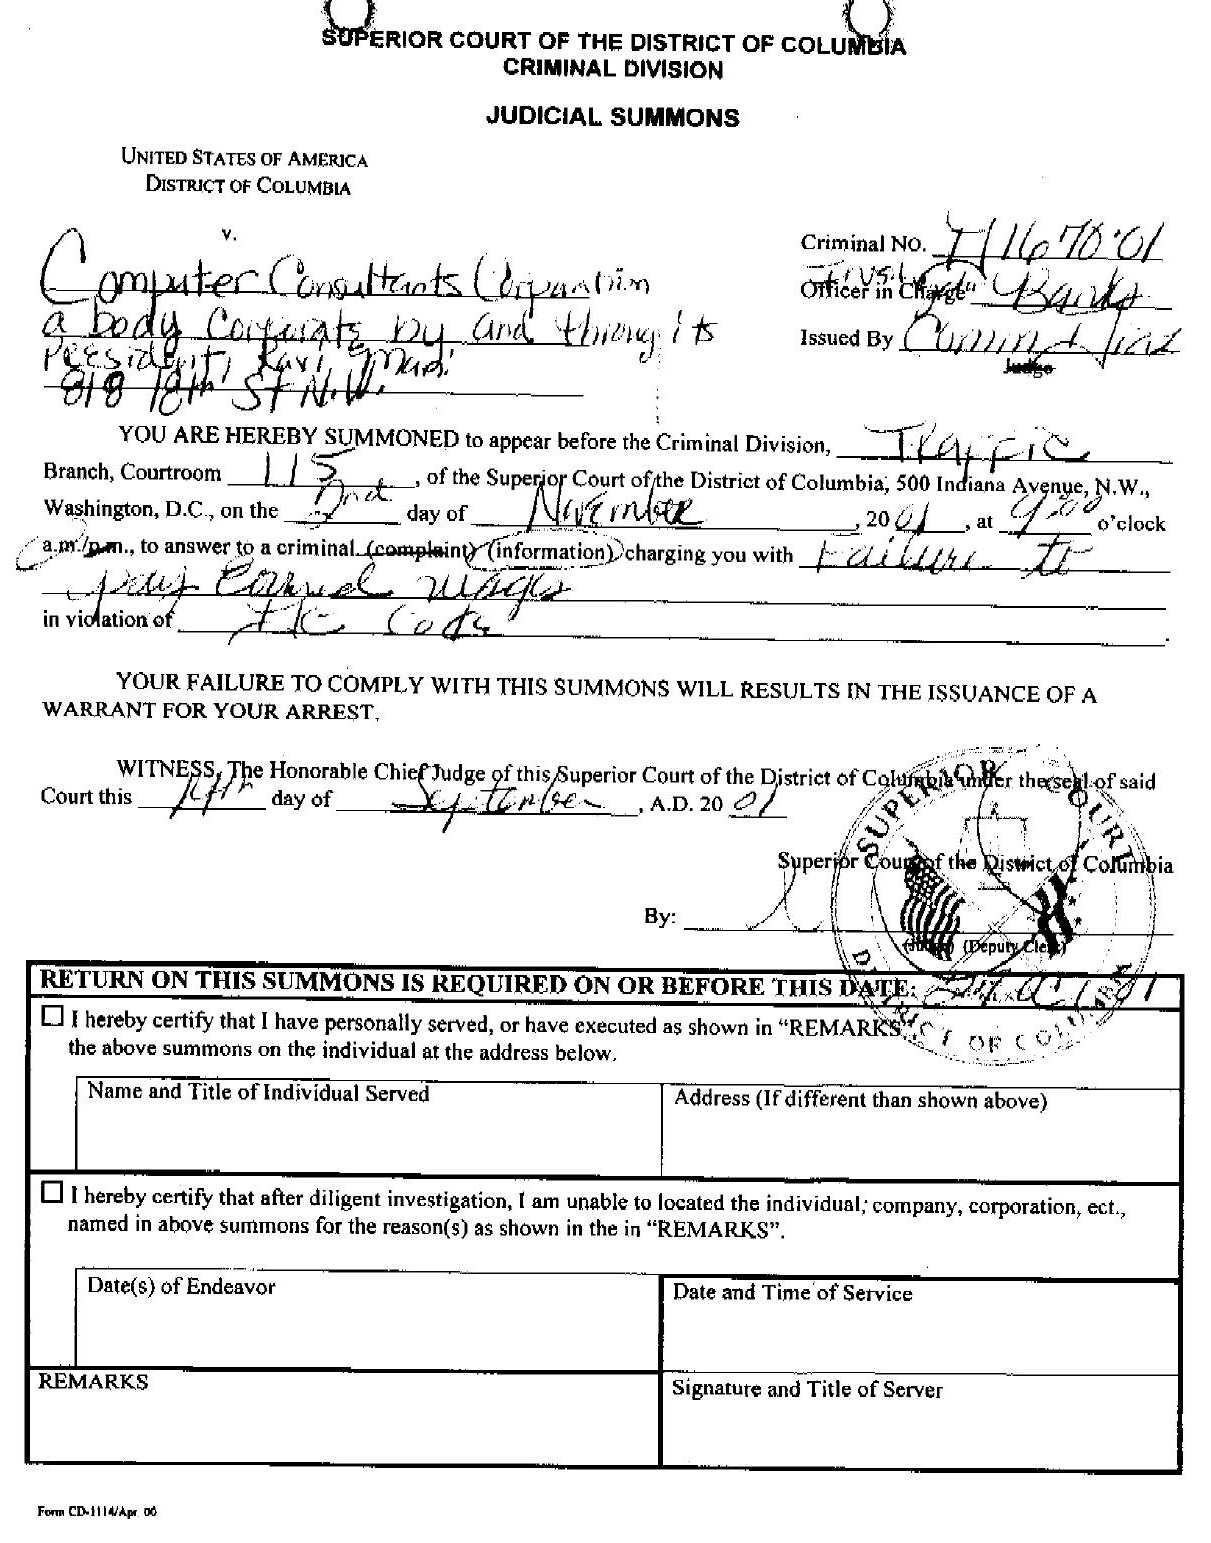 SUPERIOR COURT OF THE DISTRICT OF COLUMBIA
CRIMINAL DIVISION
JUDICIAL SUMMONS
UNITED STATES OF AMERICA
DISTRICT OF COLUMBIA
v.
Criminal No.
Computer Consultants Corporation
Officer in Charge Banks
a body Corporate by and through its
Issued By
President, Ravi
Judge
818 18th St N.W.
YOU ARE HEREBY SUMMONED to appear before the Criminal Division, Traffic
Branch, Courtroom 115, of the Superior Court of the District of Columbia, 500 Indiana Avenue, N.W.,
Washington, D.C., on the 2nd day of November, 2001, at 9:00 o'clock
a.m./p.m., to answer to a criminal (complaint) (information) charging you with Failure to
pay Earned wages
in violation of Code
YOUR FAILURE TO COMPLY WITH THIS SUMMONS WILL RESULTS IN THE ISSUANCE OF A
WARRANT FOR YOUR ARREST.
WITNESS, The Honorable Chief Judge of this Superior Court of the District of Columbia under the seal of said
Court this day of September, A.D. 2001
Superior Court of the District of Columbia
By:
(Judge) (Deputy Clerk)
SUPERIOR COURT
DISTRICT OF COLUMBIA
RETURN ON THIS SUMMONS IS REQUIRED ON OR BEFORE THIS DATE:
I hereby certify that I have personally served, or have executed as shown in “REMARKS”,
the above summons on the individual at the address below.
Name and Title of Individual Served
Address (If different than shown above)
I hereby certify that after diligent investigation, I am unable to located the individual, company, corporation, ect.,
named in above summons for the reason(s) as shown in the in “REMARKS”.
Date(s) of Endeavor
Date and Time of Service
REMARKS
Signature and Title of Server
Form CD-1114/Apr 00